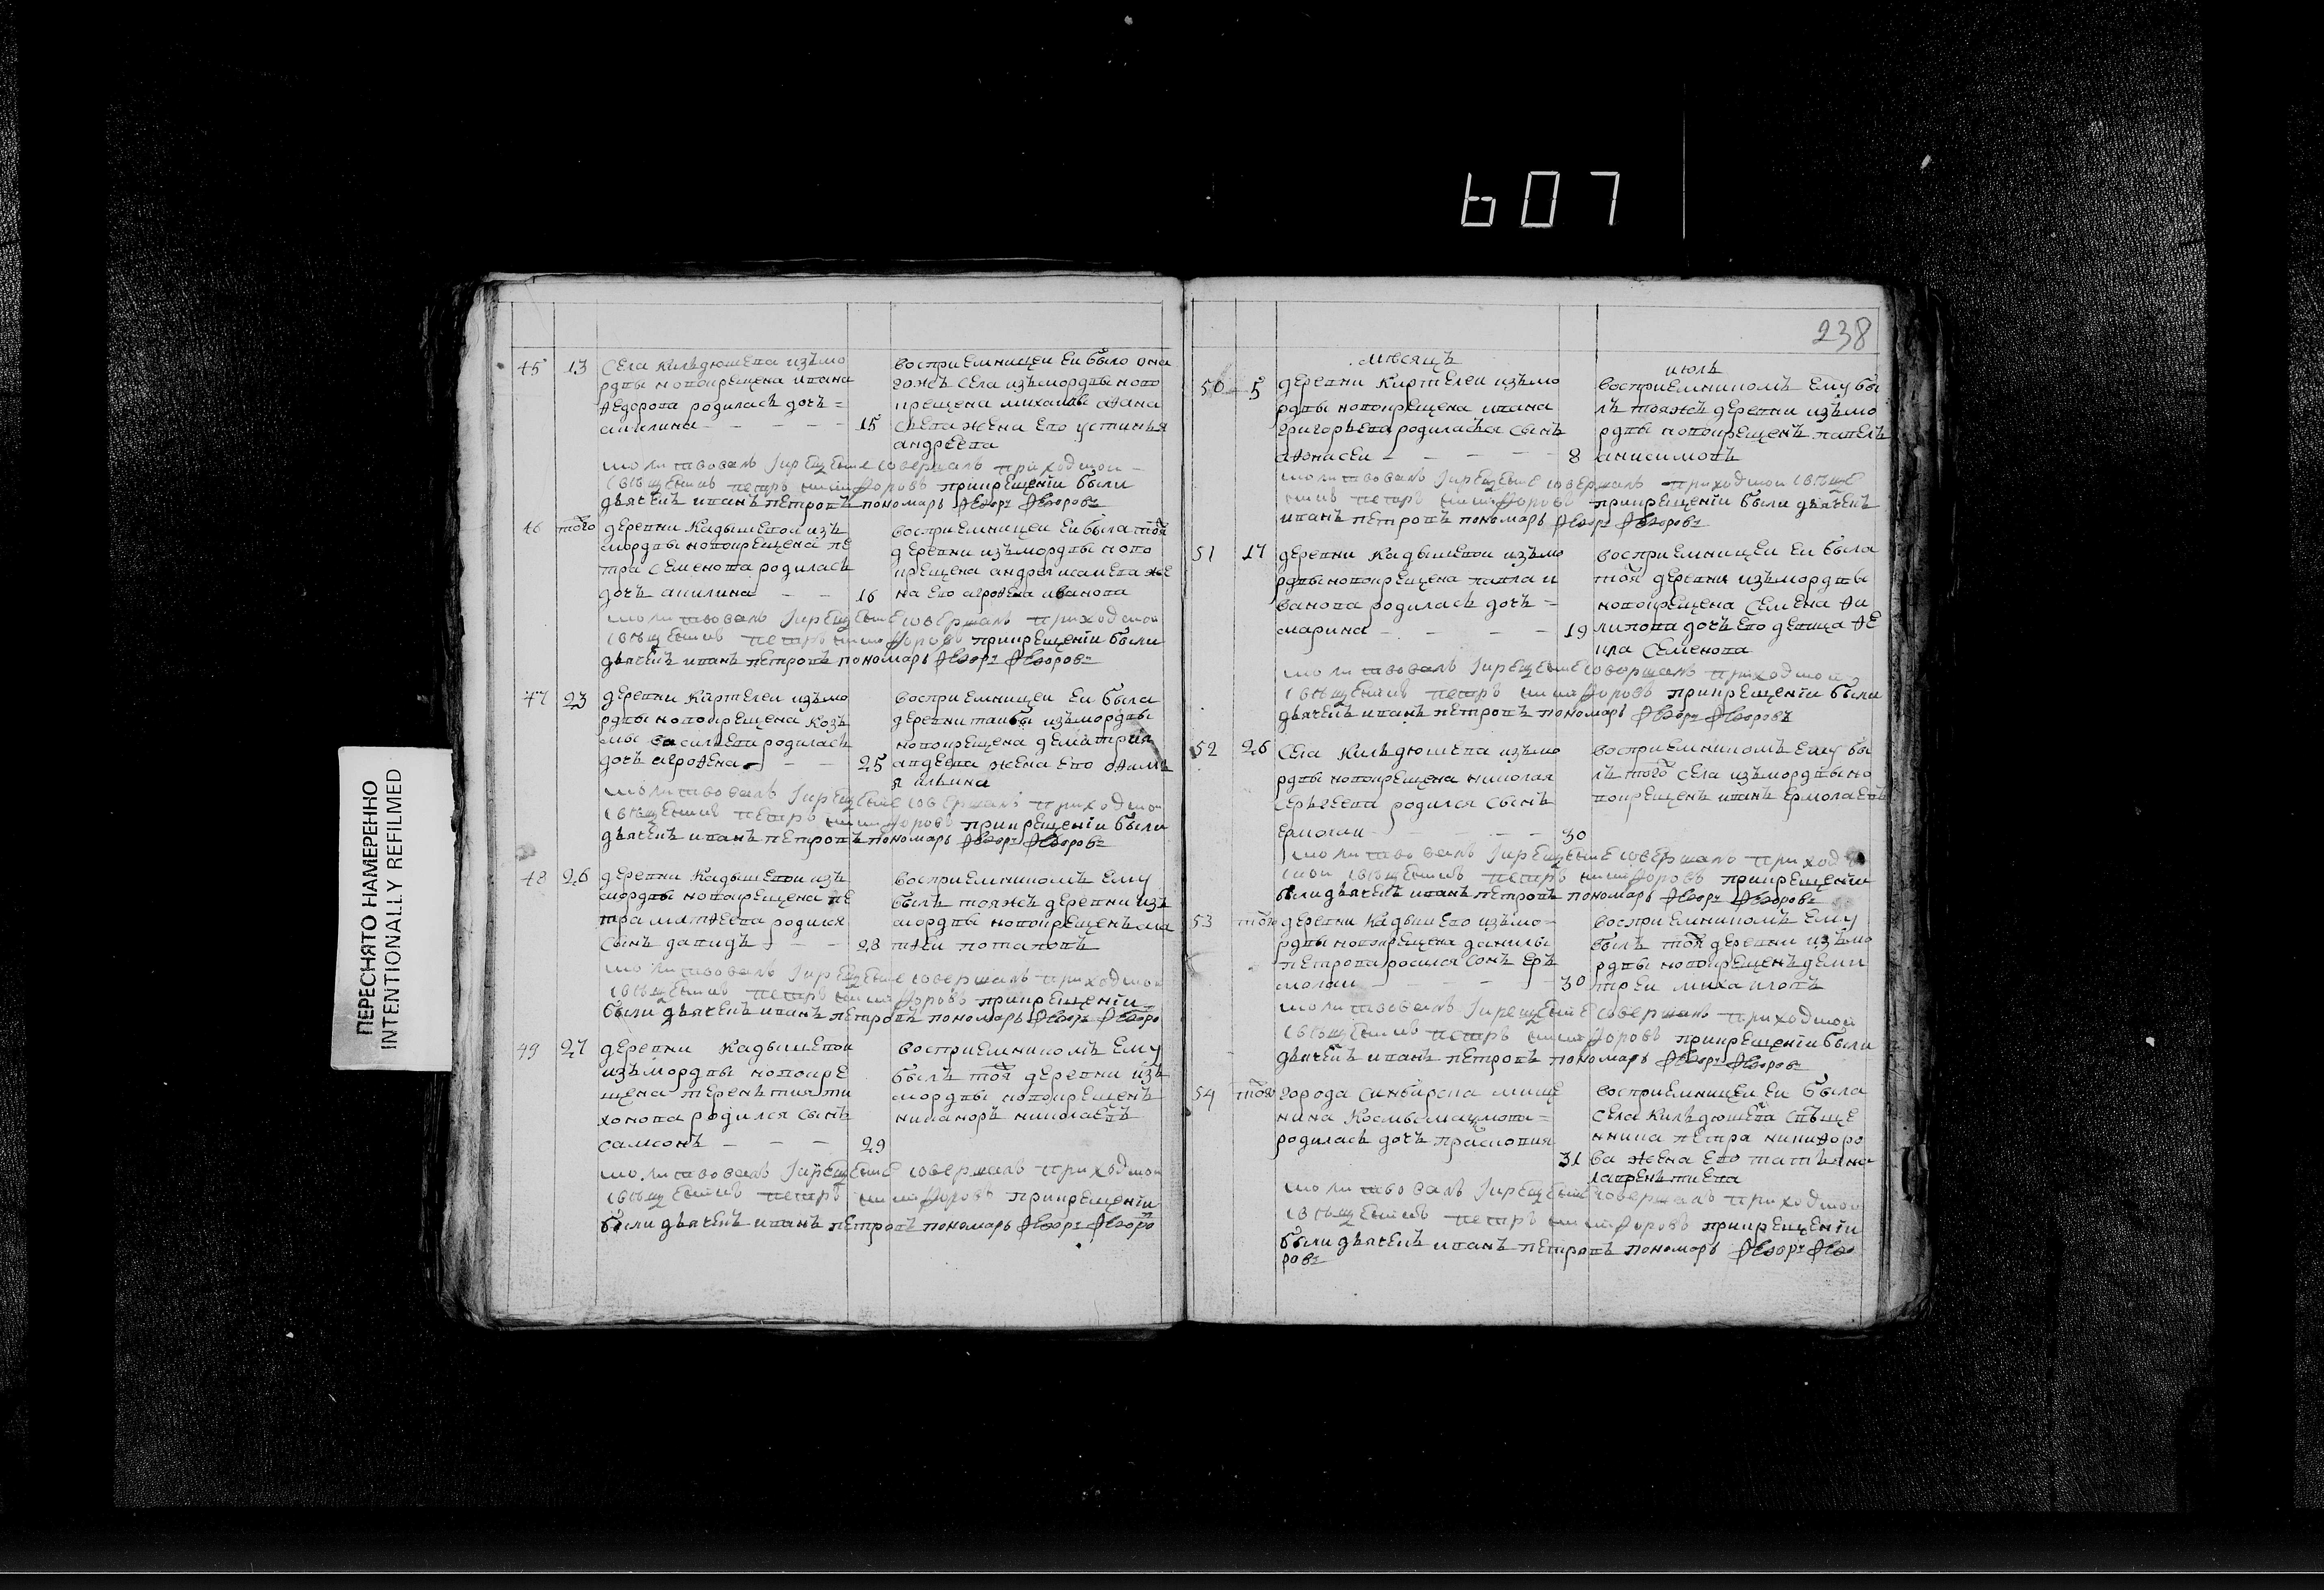 607
ПЕРЕСНЯТО НАМЕРЕННО
INTENTIONALLY REFILMED
45 13 Села Кильдюшева изъ мо
рдвы новокрещена ивана
Федорова родилась дочь =
акилина — — — 15
восприемницеи ей было она
гожъ села изъ мордвы ново
крещена
жена ево устинья
андреева
молитвовалъ и крещение совершалъ приходшои
священникъ петръ никифоровъ при крещеніи были
дьячекъ иванъ петровъ пономарь Федоръ Федоровъ
46 того деревни Кадышевои изъ
мордвы новокрещена пе
тра семенова родилась
дочь акилина — — 16
восприемницеи ей была той
деревни изъ мордвы ново
крещена андрея исаиева же
на ево агрофена иванова
молитвовалъ и крещение совершалъ приходшои
священникъ петръ никифоровъ при крещеніи были
дьячекъ иванъ петровъ пономарь Федоръ Федоровъ
47 23 деревни Киртелеи изъ мо
рдвы новокрещена козь
мы васильева родилась
дочь агрофена — — 25
восприемницеи ей была
деревни таибы изъ мордвы
новокрещена демитрия
авдеева жена ево
ильина
молитвовалъ и крещение совершалъ приходшои
священникъ петръ никифоровъ при крещеніи были
дьячекъ иванъ петровъ пономарь Федоръ Федоровъ
48 26 деревни Кадышевои изъ
мордвы новокрещена пе
тра матфеева родился
сынъ давидъ — — 28
восприемникомъ ему
былъ тояжъ деревни изъ
мордвы новокрещенъ ма
тфеи потаповъ
молитвовалъ и крещение совершалъ приходшои
священникъ петръ никифоровъ при крещеніи
были дьячекъ иванъ петровъ пономарь Федоръ Федоро
49 27 деревни Кадышевои
изъ мордвы новокре
щена терентия ти
хонова родился сынъ
самсонъ — — — 29
восприемникомъ ему
былъ тоя деревни изъ
мордвы новокрещенъ
никаноръ николаевъ
молитвовалъ и крещение совершалъ приходшои
священникъ петръ никифоровъ при крещеніи
были дьячекъ иванъ петровъ пономарь Федоръ Федоро
238
Месяцъ июль
50 5 деревни Киртелеи изъ мо
рдвы новокрещена ивана
григорьева родилася сынъ
афонасеи — — — 8
восприемникомъ ему бы
лъ тояжъ деревни изъ мо
рдвы новокрещенъ павелъ
анисимовъ
молитвовалъ и крещение совершалъ приходшои свяще
никъ петръ никифоровъ при крещеніи были дьячекъ
иванъ петровъ пономарь Федоръ Федоровъ
51 17 деревни Кадышевои изъ мо
рдвы новокрещена павла и
ванова родилась дочь =
марина — — — 19
восприемницеи ей была
тоя деревни изъ мордвы
новокрещена семена фи
липова дочь ево девица фе
кла семенова
молитвовалъ и крещение совершалъ приходшои
священникъ петръ никифоровъ при крещеніи были
дьячекъ иванъ петровъ пономарь Федоръ Федоровъ
52 26 села Кильдюшева изъ мо
рдвы новокрещена николая
сергеева родился сынъ
ермолаи — — — 30
восприемникомъ ему бы
лъ того села изъ мордвы но
вокрещенъ иванъ ермолаевъ
молитвовалъ и крещение совершалъ приход
шои священникъ петръ никифоровъ при крещеніи
были дьячекъ иванъ петровъ пономарь Федоръ Федоровъ
53 того деревни Кадышево изъ мо =
рдвы новокрещена данилы
петрова росился сонъ ерь
молаи — — — 30
восприемникомъ ему
былъ тоя деревни изъ мо
рдвы новокрещенъ деми
треи михаиловъ
молитвовалъ и крещение совершалъ приходшои
священникъ петръ никифоровъ при крещеніи были
дьячекъ иванъ петровъ пономарь Федоръ Федоровъ
54 того города синбирска мище
нина Космы =
родилась дочь праскопия
31
восприемницеи ей была
села Кильдюшева свяще
нника петра никифоро
ва жена ево татьяна
лаврентиева
молитвовалъ и крещение совершалъ приходшои
священникъ петръ никифоровъ при крещеніи
были дьячекъ иванъ петровъ пономарь Федоръ Федо
ровъ